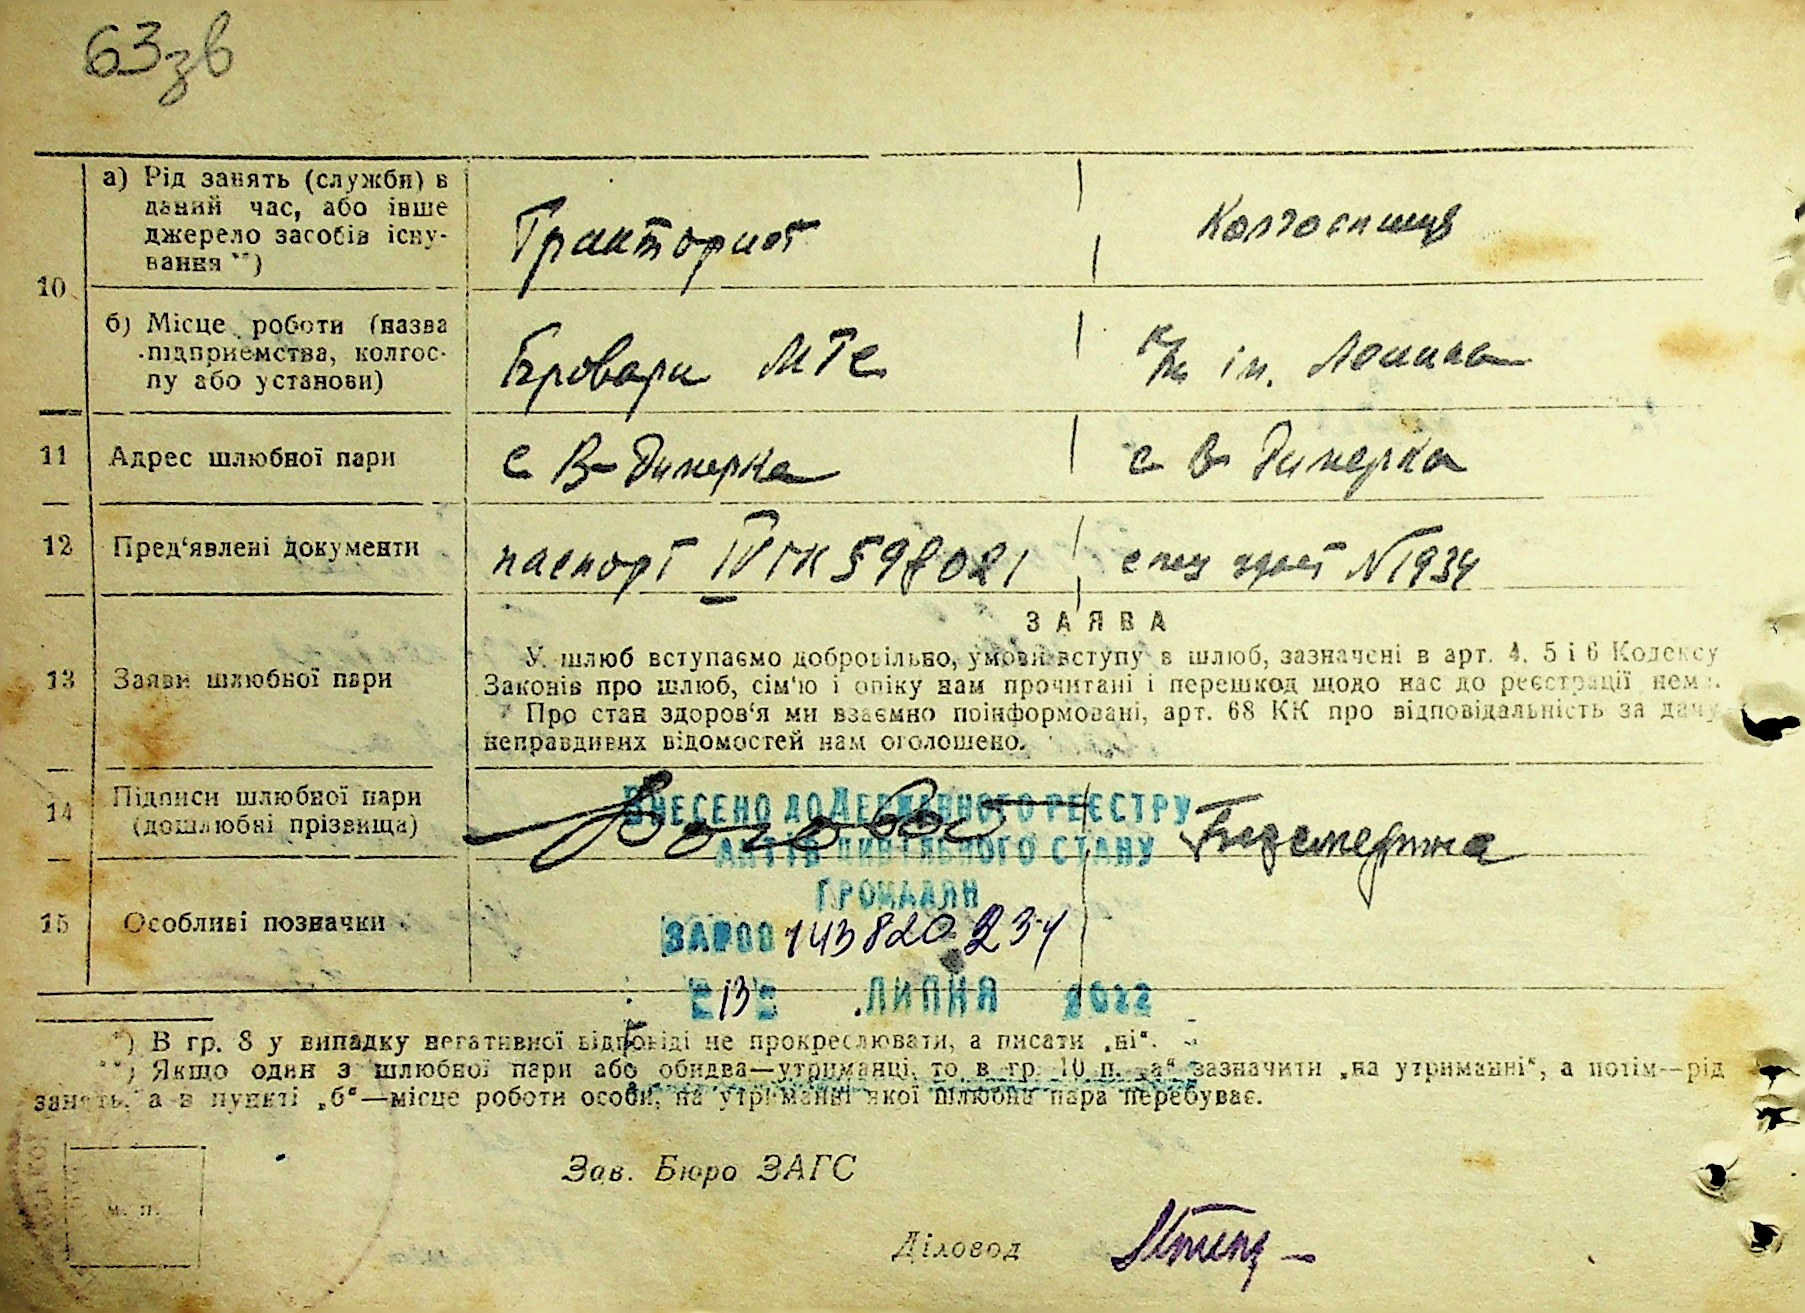 63зв
а) Рід занять (службн) в
даний час, або інше
джерело засобів існу-
вання **)
Тракторист
Колгоспниця
10
б) Місце роботи (назва
підприємства, колгос-
пу або установи)
Бровари МТС
к/г ім. Леніна
11 Адрес шлюбної пари
с В-Димерка
с В-Димерка
12 Пред‘явлені документи
паспорт IV ГК 598021
спец удост N 1934
13 Заяви шлюбної пари
ЗАЯВА
У шлюб вступаємо добровільно, умови вступу в шлюб, зазначені в арт. 4, 5 і 6 Кодексу
Законів про шлюб, сім‘ю і опіку нам прочитані і перешкод щодо нас до реєстрації нема.
Про стан здоров‘я ми взаємно поінформовані, арт. 68 КК про відповідальність за дачу
неправдивих відомостей нам оголошено.
14 Підписи шлюбної пари
(дошлюбні прізвища)
ВНЕСЕНО ДО ДЕРЖАВНОГО РЕЄСТРУ
АКТІВ ЦИВІЛЬНОГО СТАНУ
ГРОМАДЯН
15 Особливі позначки
ЗА №00 143820234
"13" ЛИПНЯ 2022
*) В гр. 8 у випадку негативної відповіді не прокреслювати, а писати „ні“.
**) Якщо один з шлюбної пари або обидва—утриманці, то в гр. 10 п. „а“ зазначити „на утриманні“, а потім—рід
занять, а в пункті „б“—місце роботи особи, на утриманні якої шлюбна пара перебуває.
Зав. Бюро ЗАГС
м. п.
Діловод